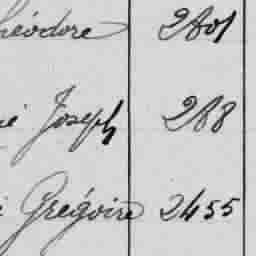 Théodore 2801
Joseph 288
Grégoire 2455